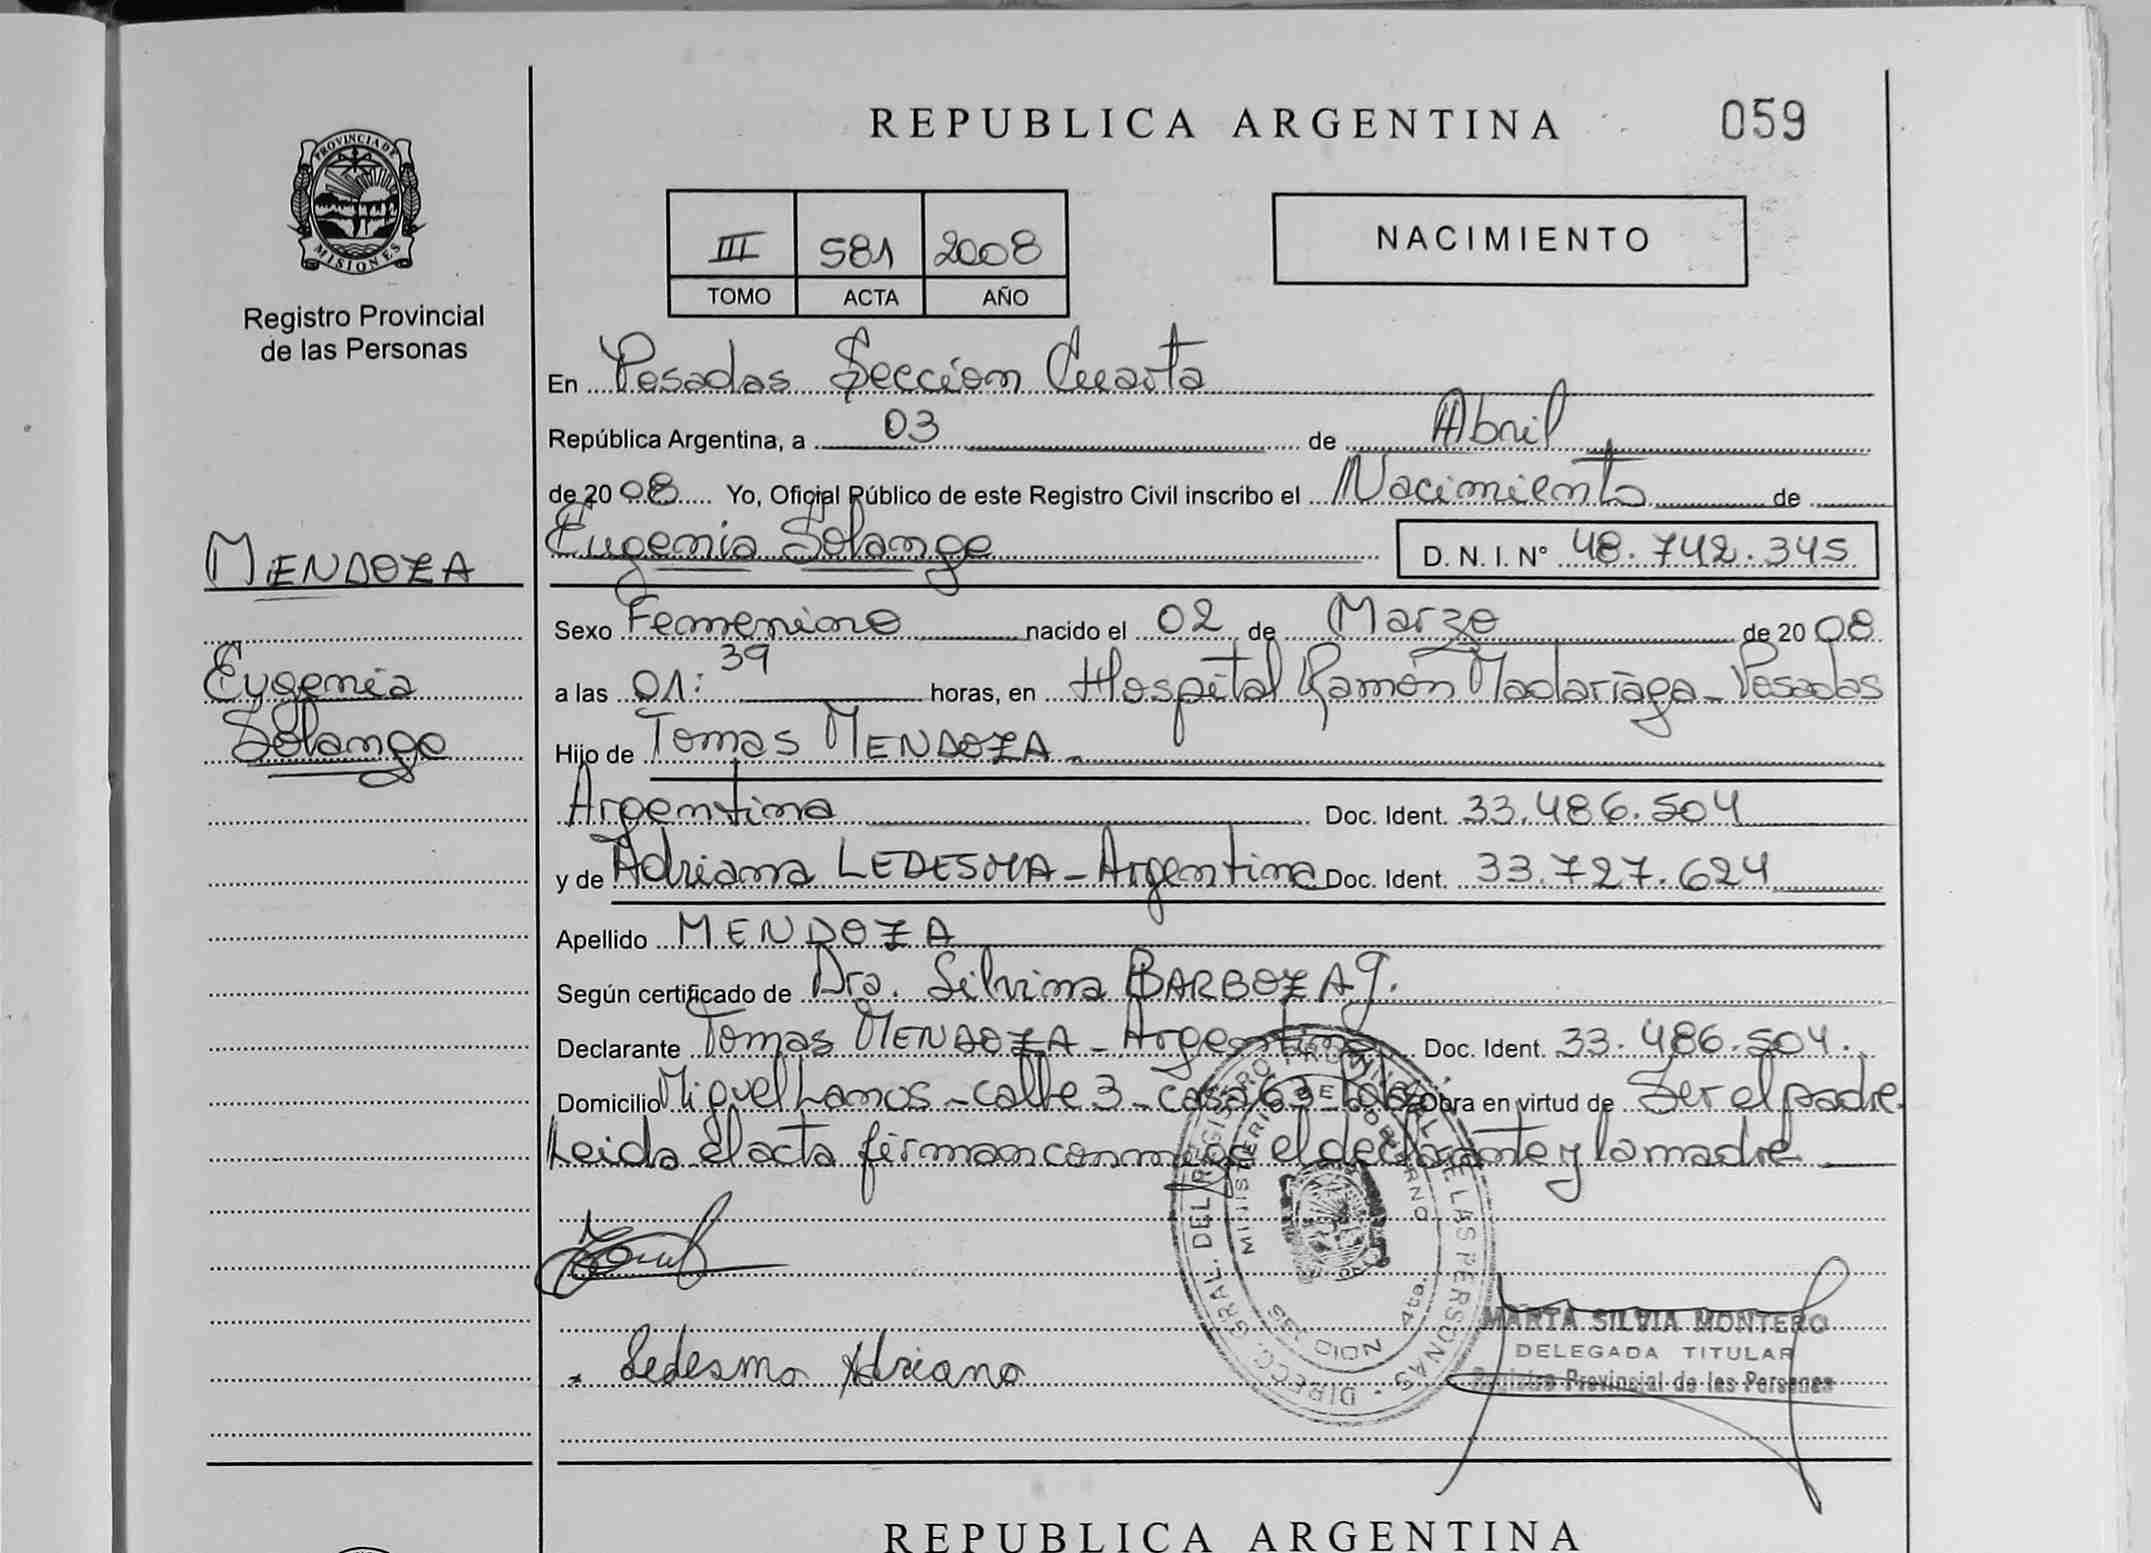 REPUBLICA ARGENTINA
059
PROVINCIA DE
MISIONES
Registro Provincial
de las Personas
III 581 2008
TOMO ACTA AÑO
NACIMIENTO
En Posadas Sección Cuarta
República Argentina, a 03 de Abril
de 2008 Yo, Oficial Público de este Registro Civil inscribo el Nacimiento de
MENDOZA
Eugenia Solange
Eugenia Solange
D. N. I. N° 48.742.345
Sexo Femenino nacido el 02 de Marzo de 2008
a las 01:39 horas, en Hospital Ramón Madariaga - Posadas
Hijo de Tomas MENDOZA -
Argentina Doc. Ident. 33.486.504
y de Adriana LEDESMA - Argentina Doc. Ident. 33.727.624
Apellido MENDOZA
Según certificado de Dra. Silvina BARBOZA G.
Declarante Tomas MENDOZA - Argentina Doc. Ident. 33.486.504.
Domicilio Miguel Lanus - calle 3 - casa 63 - Obra en virtud de Ser el padre.
Leida el acta firman conmigo el declarante y la madre
DIRECC. GRAL. DEL REGISTRO PROVINCIAL DE LAS PERSONAS
MINISTERIO DE GOBIERNO
4ta.
Ledesma Adriana
MARTA SILVIA MONTERO
DELEGADA TITULAR
Registro Provincial de las Personas
REPUBLICA ARGENTINA